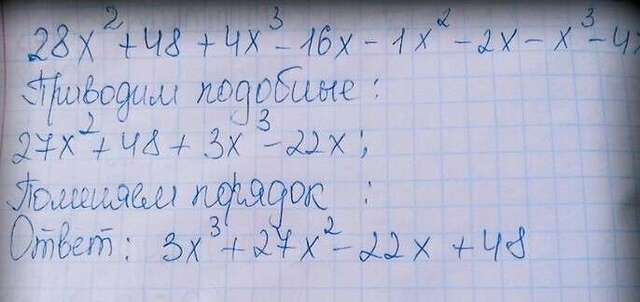 28x² + 48 + 4x³ - 16x - 1x² - 2x - x³ - 4x
Приводим подобные :
27x² + 48 + 3x³ - 22x ;
Поменяем порядок :
Ответ : 3x³ + 27x² - 22x + 48